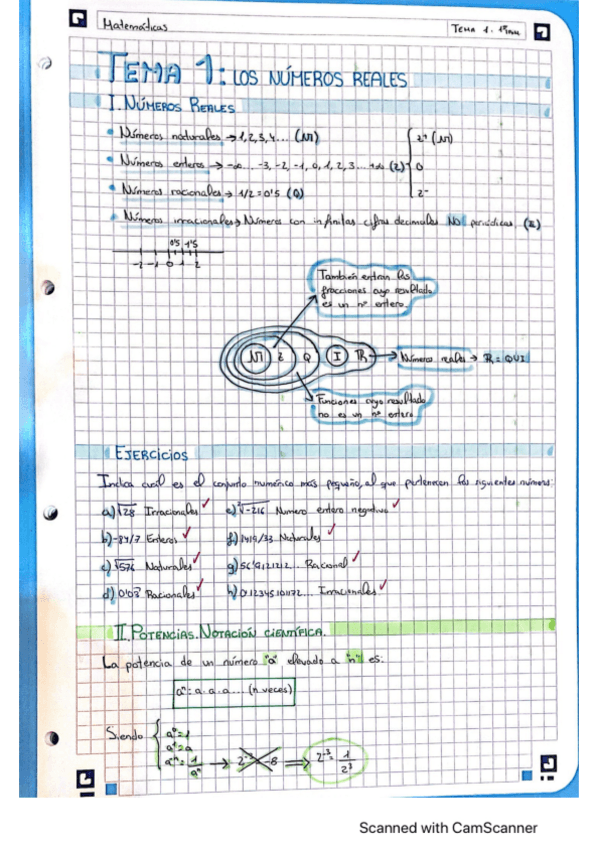 Matemáticas
TEMA 1. 1ª Eval
TEMA 1: LOS NÚMEROS REALES
I. NÚMEROS REALES
• Números naturales → 1, 2, 3, 4... (ℕ)
• Números enteros → -∞... -3, -2, -1, 0, 1, 2, 3... +∞ (Z)
Z⁺ (ℕ)
0
Z⁻
• Números racionales → 1/2 = 0'5 (Q)
• Números irracionales → Números con infinitas cifras decimales NO periódicas (I)
0'5 1'5
-2 -1 0 1 2
También entran las
fracciones cuyo resultado
es un nº entero.
ℕ Z Q I ℝ → Números reales → ℝ = QUI
Funciones cuyo resultado
no es un nº entero
EJERCICIOS
Indica cuál es el conjunto numérico más pequeño, al que pertenecen los siguientes números:
a) √28 Irracionales ✓ e) ∛-216 Numero entero negativo ✓
b) -84/7 Enteros ✓ f) 1419/33 Naturales ✓
c) √576 Naturales ✓ g) 56'9121212... Racional ✓
d) 0'03 Racionales ✓ h) Irracionales ✓
II. POTENCIAS. NOTACIÓN CIENTÍFICA.
La potencia de un número "a" elevado a "n" es:
aⁿ = a · a · a ... (n veces)
Siendo
a⁰ = 1
a¹ = a
a⁻ⁿ = 1/aⁿ → 2⁻³ -8 ⟹ 2⁻³ = 1/2³
Scanned with CamScanner